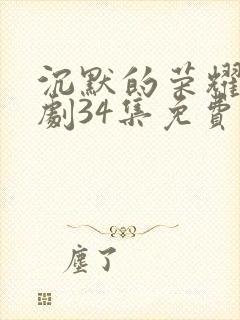 沉默的荣耀
劇34集免費
塵了